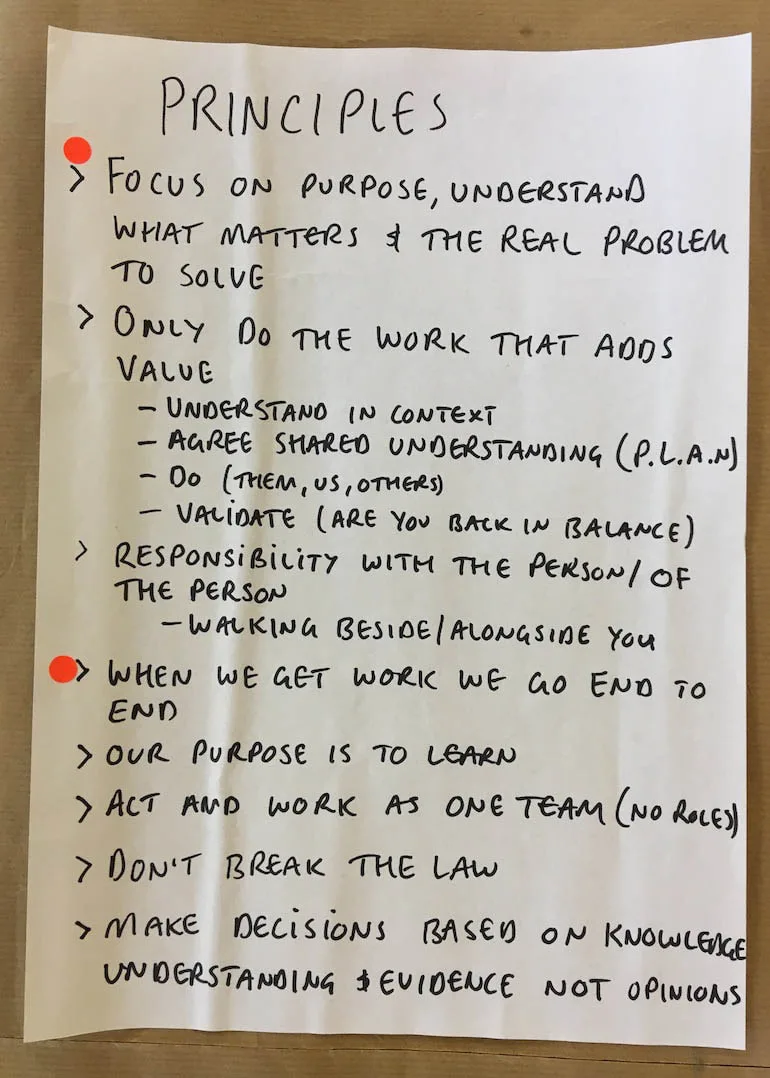 PRINCIPLES
> FOCUS ON PURPOSE, UNDERSTAND
WHAT MATTERS & THE REAL PROBLEM
TO SOLVE
> ONLY DO THE WORK THAT ADDS
VALUE
- UNDERSTAND IN CONTEXT
- AGREE SHARED UNDERSTANDING (P.L.A.N)
- DO (THEM, US, OTHERS)
- VALIDATE (ARE YOU BACK IN BALANCE)
> RESPONSIBILITY WITH THE PERSON/OF
THE PERSON
- WALKING BESIDE/ALONGSIDE YOU
> WHEN WE GET WORK WE GO END TO
END
> OUR PURPOSE IS TO LEARN
> ACT AND WORK AS ONE TEAM (NO ROLES)
> DON'T BREAK THE LAW
> MAKE DECISIONS BASED ON KNOWLEDGE
UNDERSTANDING & EVIDENCE NOT OPINIONS